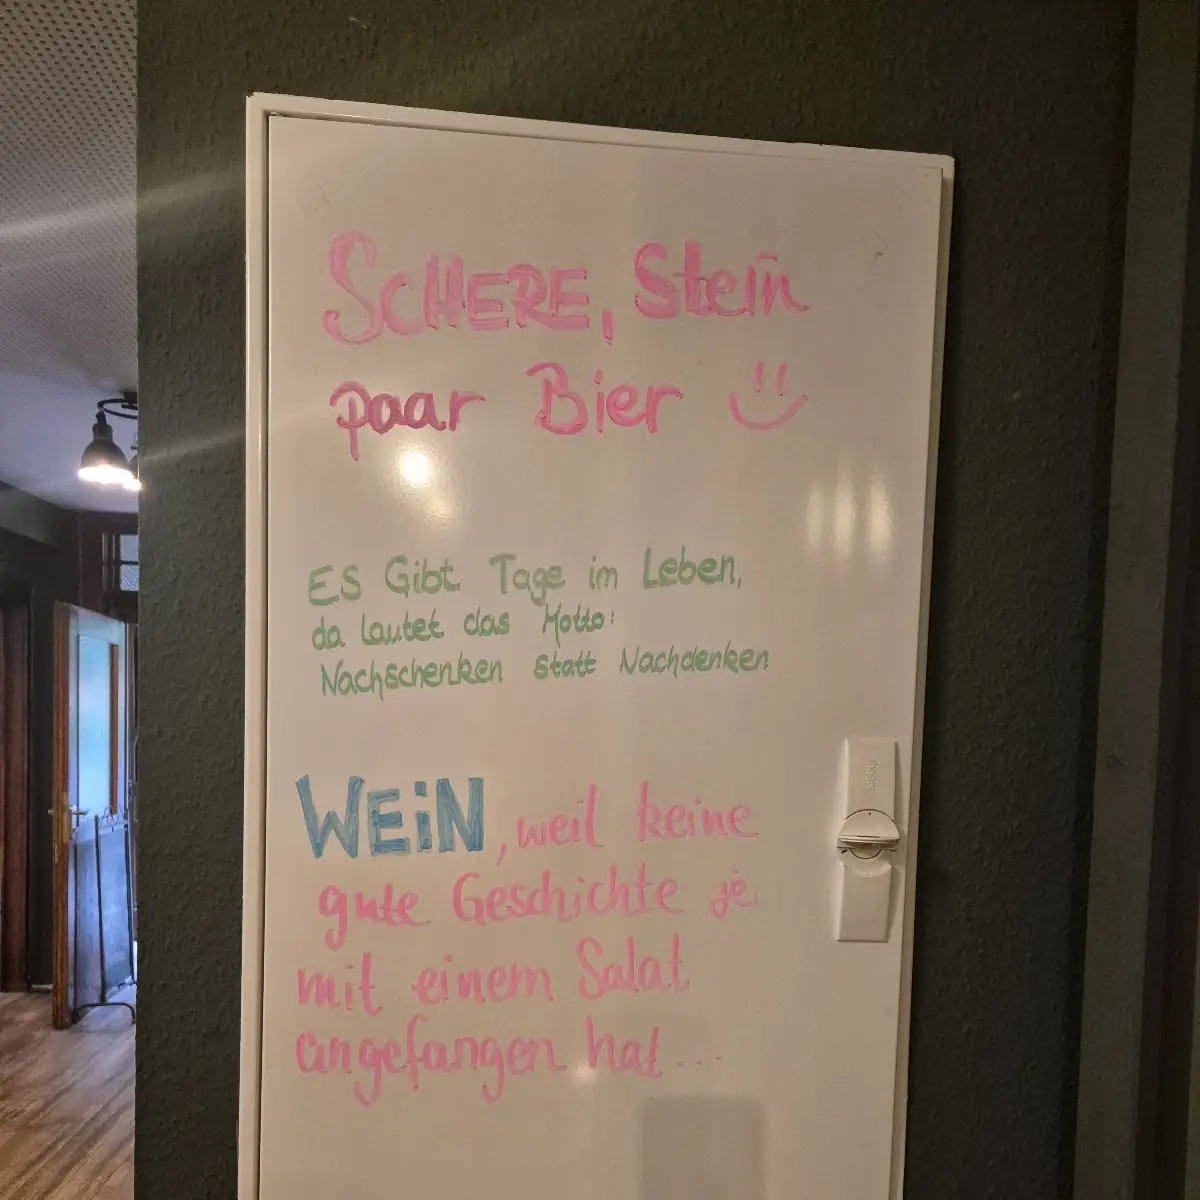 SCHERE, Stein
paar Bier
ES Gibt Tage im Leben,
da lautet das Motto:
Nachschenken statt Nachdenken
WEiN, weil keine
gute Geschichte je
mit einem Salat
angefangen hat...